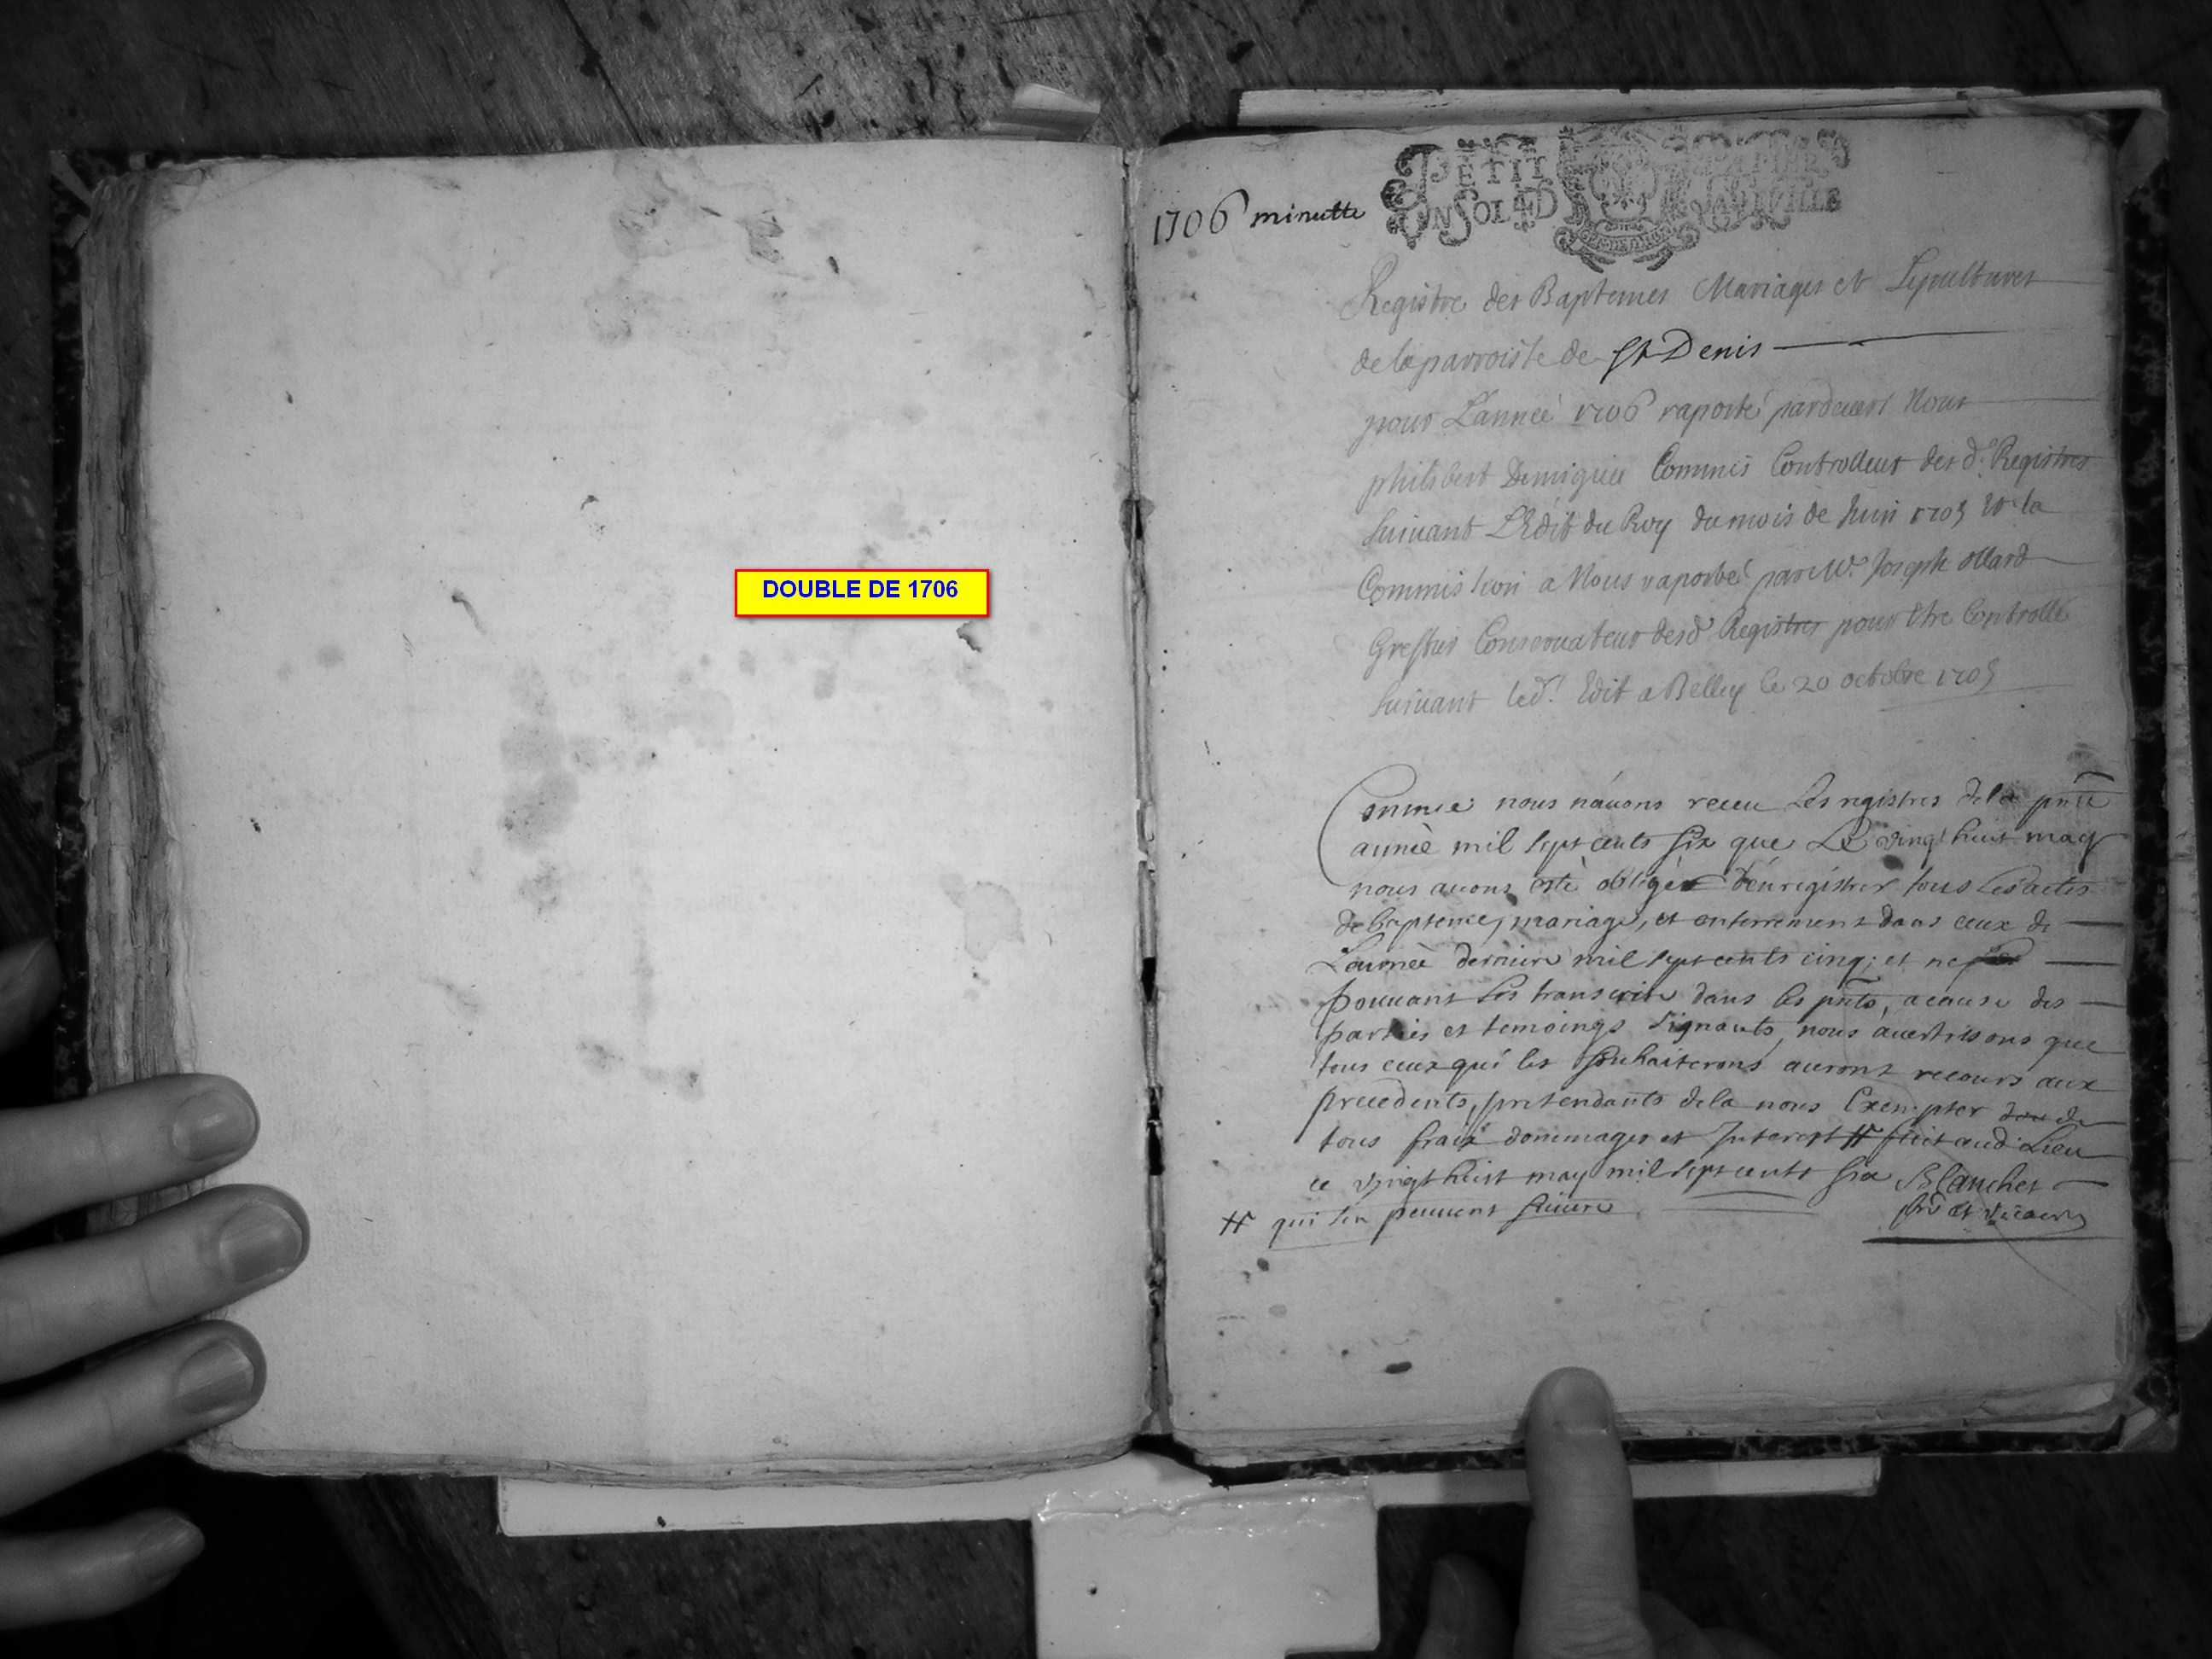 DOUBLE DE 1706
1706 minutte
PETIT PAPIER
UN SOL 4 D LA FEUILLE
Registre des Baptemes Mariages et Sepultures
de la parroisse de St Denis
pour L'année 1706 raporté pardevant Nous
philibert Commis Controlleur des d. Registres
suivant L'Edit du Roy du mois de Juin 1705 Et la
Commission a Nous raportée par Mr. Joseph ollard
Greffier Conservateur desd Registres pour Etre Controllé
suivant led. Edit a Belley le 20 octobre 1705
Comme nous n'auons receu les registres de la pnte
année mil sept cents six que Le vingt huit may
nous auons esté obligés d'enregistrer tous les actes
de bapteme, mariage, et enterrement dans ceux de
L'année derniere mil sept cents cinq; et ne
pouuant les transcrire dans les pnts, a cause des
parties et temoings signants, nous auertissons que
tous ceux qui les souhaiteront auront recours aux
precedents, pretendants de la nous Exempter de
tous frais dommages et Interest # fait aud. Lieu
ce vingt huit may mil sept cents six Blanchet
# qui s'en peuuent suiure ptre et vicaire